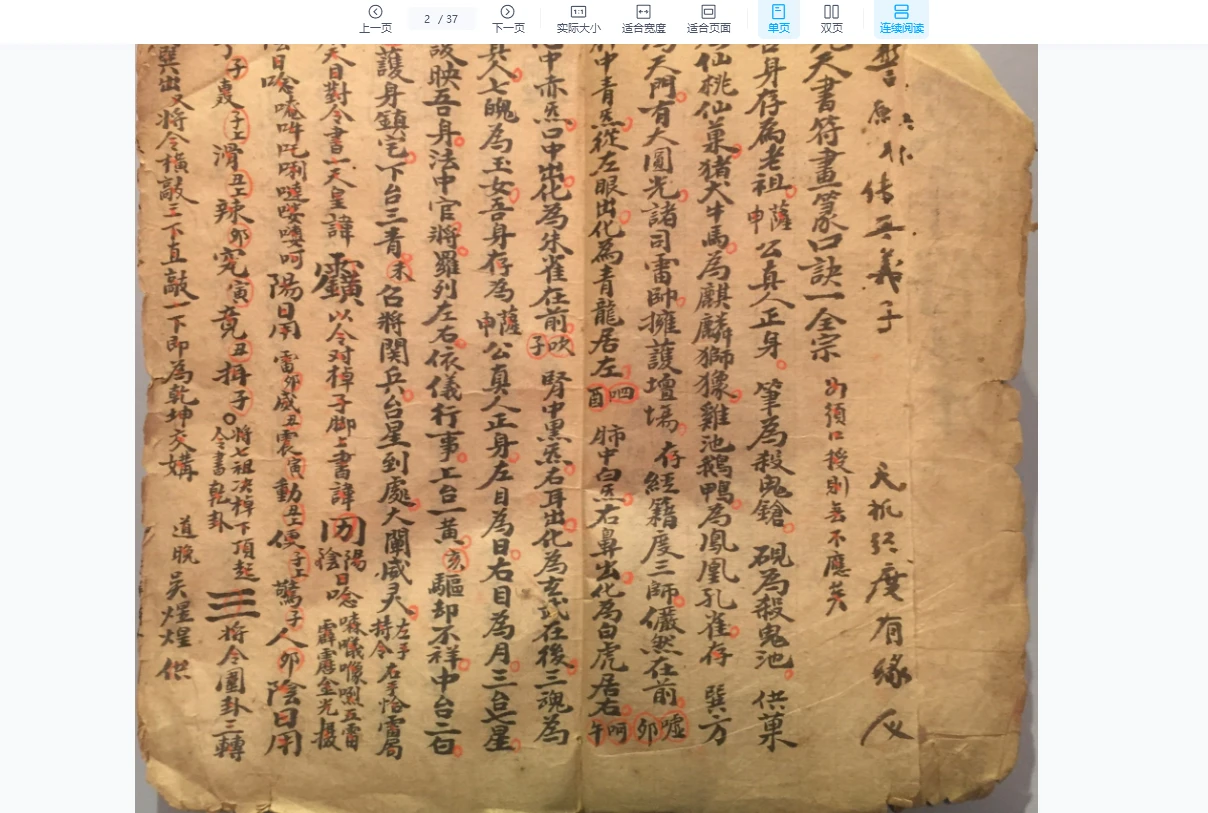 上一页
2 / 37
下一页
实际大小
适合宽度
适合页面
单页
双页
连续阅读
天机往度有缘人
原非传无義子
元天書符畫篆口訣一全宗 必須口授則無不應矣
吾身存為老祖薩申公真人正身 筆為殺鬼鎗 硯為殺鬼池 供菓
仙桃仙菓猪犬牛馬為麒麟獅獴雞池鵝鴨為鳳凰孔雀存 巽方
為天門有大圓光諸司雷師擁護壇場 存經籍度三師儼然在前 噓卯
肝中青炁從左眼出化為青龍居左 呬酉 肺中白炁右鼻出化為白虎居右 呵午
心中赤炁口中出化為朱雀在前 吹子 腎中黑炁右耳出化為玄武在後三魂為
真人七魄為玉女吾身存為薩申公真人正身左目為日右目為月三台七星
映吾身法中官將羅列左右依儀行事上台一黃 亥 驅却不祥中台二白
護身鎮宅下台三青 未 召將関兵台星到處大闡威灵 左手持令右手恰雷局
天目對令書一天皇諱 以令对棹子脚上書諱 陽陰日唸 五雷霹靂金光摄
陰日唸 陽日用 雷卯威丑震寅動丑工便子工驚子人卯陰日用
子轰子工滑丑工辣卯究寅竟丑揖子 將七祖决棹下頂起令書乾卦 三 將令圍卦三轉
巽出又將令橫敲三下直敲一下即為乾坤交媾 道晚 吴煌煌供